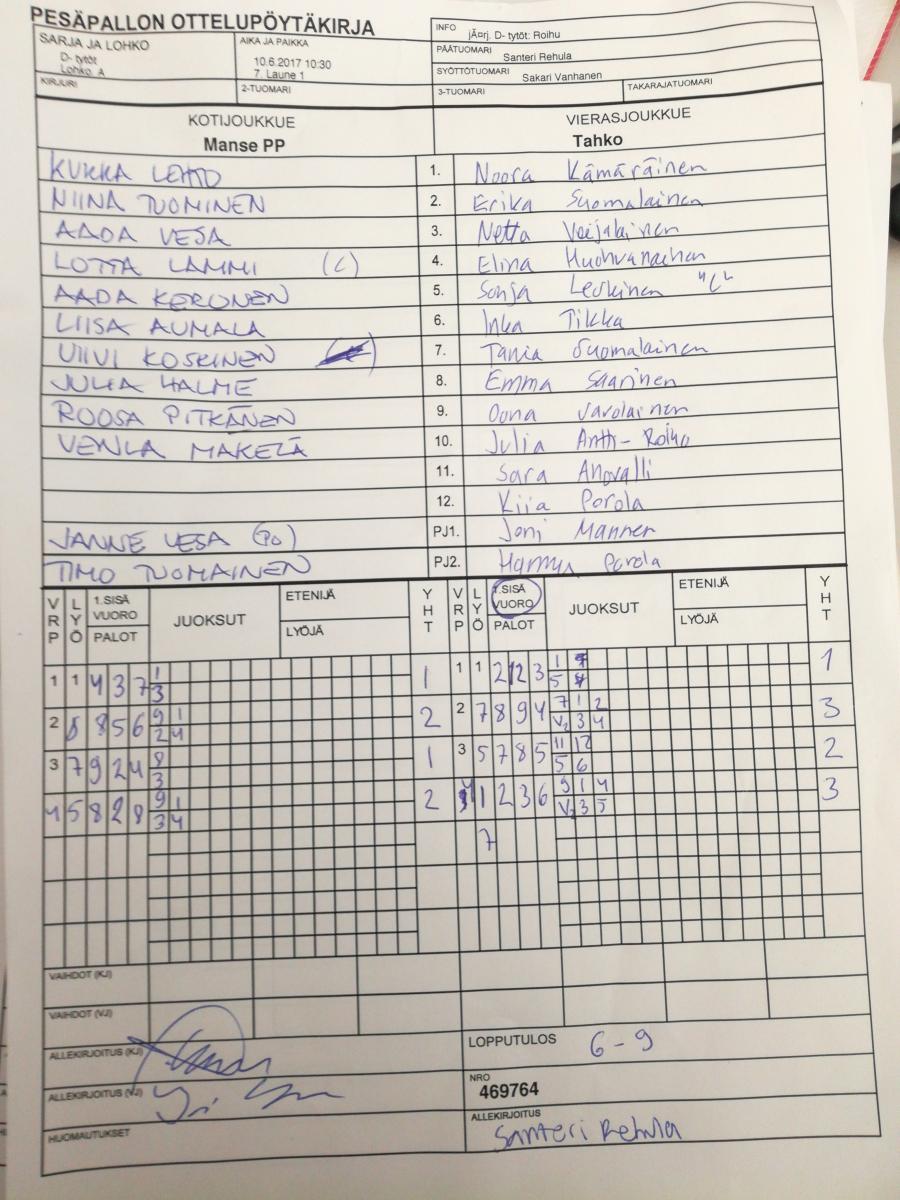 PESÄPALLON OTTELUPÖYTÄKIRJA
SARJA JA LOHKO
D- tytöt
Lohko A
AIKA JA PAIKKA
10.6.2017 10:30
7. Laune 1
KIRJURI
2-TUOMARI
INFO jÃ¤rj. D- tytöt: Roihu
PÄÄTUOMARI Santeri Rehula
SYÖTTÖTUOMARI Sakari Vanhanen
3-TUOMARI TAKARAJATUOMARI
KOTIJOUKKUE VIERASJOUKKUE
Manse PP Tahko
KUKKA LEHTO 1. Noora Kämäräinen
NIINA TUOMINEN 2. Erika Suomalainen
AADA VESA 3. Netta Veijalainen
LOTTA LAMMI (C) 4. Elina
AADA KERONEN 5. Sonja Leskinen "C"
LIISA AUMALA 6. Inka Tikka
VIIVI KOSKINEN 7. Tania Suomalainen
JULIA HALME 8. Emma Saarinen
ROOSA PITKÄNEN 9. Oona
VENLA MÄKELÄ 10. Julia Antti-Roiko
11. Sara
12. Kiia Porola
JANNE VESA (PO) PJ1. Joni Manner
TIMO TUOMAINEN PJ2. Porola
VRP LYÖ 1.SISÄ VUORO PALOT JUOKSUT ETENIJÄ LYÖJÄ YHT VRP LYÖ 1.SISÄ VUORO PALOT JUOKSUT ETENIJÄ LYÖJÄ YHT
1 1 4 3 7 1 1 1 1 2 2 3 1 1
3 5
2 8 8 5 6 9 1 2 2 7 8 9 4 7 1 2 3
2 4 V2 3 4
3 7 9 2 4 8 1 3 5 7 8 5 11 12 2
3 5 6
4 5 8 2 8 9 1 2 4 1 2 3 6 9 1 4 3
3 4 V2 3 5
7
VAIHDOT (KJ)
VAIHDOT (VJ)
ALLEKIRJOITUS (KJ)
LOPPUTULOS 6-9
ALLEKIRJOITUS (VJ)
NRO
469764
HUOMAUTUKSET
ALLEKIRJOITUS
Santeri Rehula